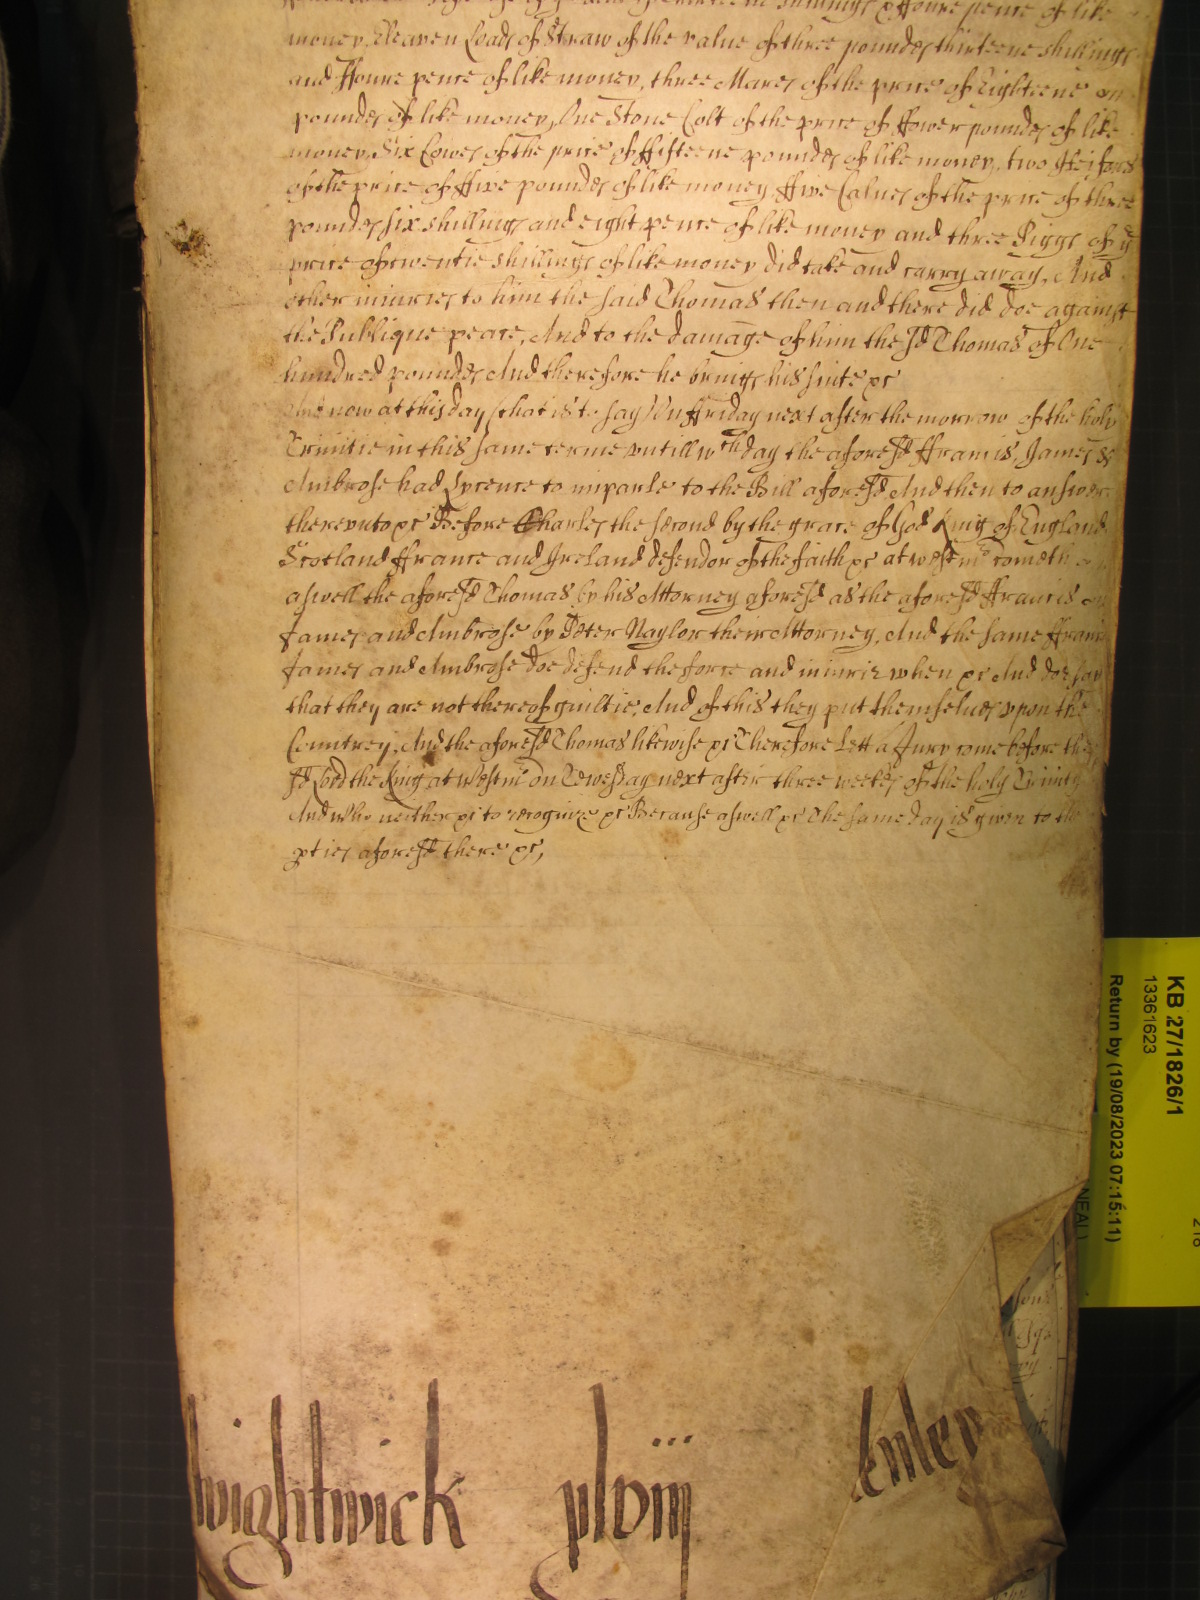 shillings & ffoure pence of like
money, Eleaven Loads of Straw of the value of three poundes thirteene shillings
and ffoure pence of like money, three Mares of the price of Eighteene
poundes of like money, One Stone Colt of the price of ffower poundes of like
money, Six Cowes of the price of ffifteene poundes of like money, two Heifors
of the price of ffive poundes of like money ffive Calues of the price of three
poundes six shillings and eight pence of like money and three Piggs of ye
price of twentie shillings of like money did take and carry away, And
other iniuries to him the said Thomas then and there did doe against
the Publique peace, And to the damage of him the sd Thomas of One
hundred poundes And therefore he brings his suite &c
And now at this day (that is to say) Vn ffriday next after the morrow of the holy
Trinitie in this same terme vntill wch day the aforesd ffrancis, James &
Ambrose had Lycence to imparle to the Bill aforesd And then to answer
therevnto &c Before Charles the second by the grace of God King of England
Scotland ffrance and Ireland defendor of the faith &c at westmr cometh
aswell the aforesd Thomas by his Attorney aforesd as the aforesd ffrancis
James and Ambrose by Peter Naylor their Attorney, And the same ffrancis
James and Ambrose doe defend the force and iniurie when &c And doe say
that they are not thereof guiltie, And of this they put themselues vpon the
Countrey, And the aforesd Thomas likewise &c Therefore Lett a Jury come before the
sd Lord the King at Westmr on Tewesday next after three weekes of the holy Trinity
And who neither &c to recognize &c Because aswell &c The same day is given to the
pties aforesd there &c,
wightwick plom̃ enley
KB 27/1826/1
13361623
Return by (19/08/2023 07:15:11)
NEAL)